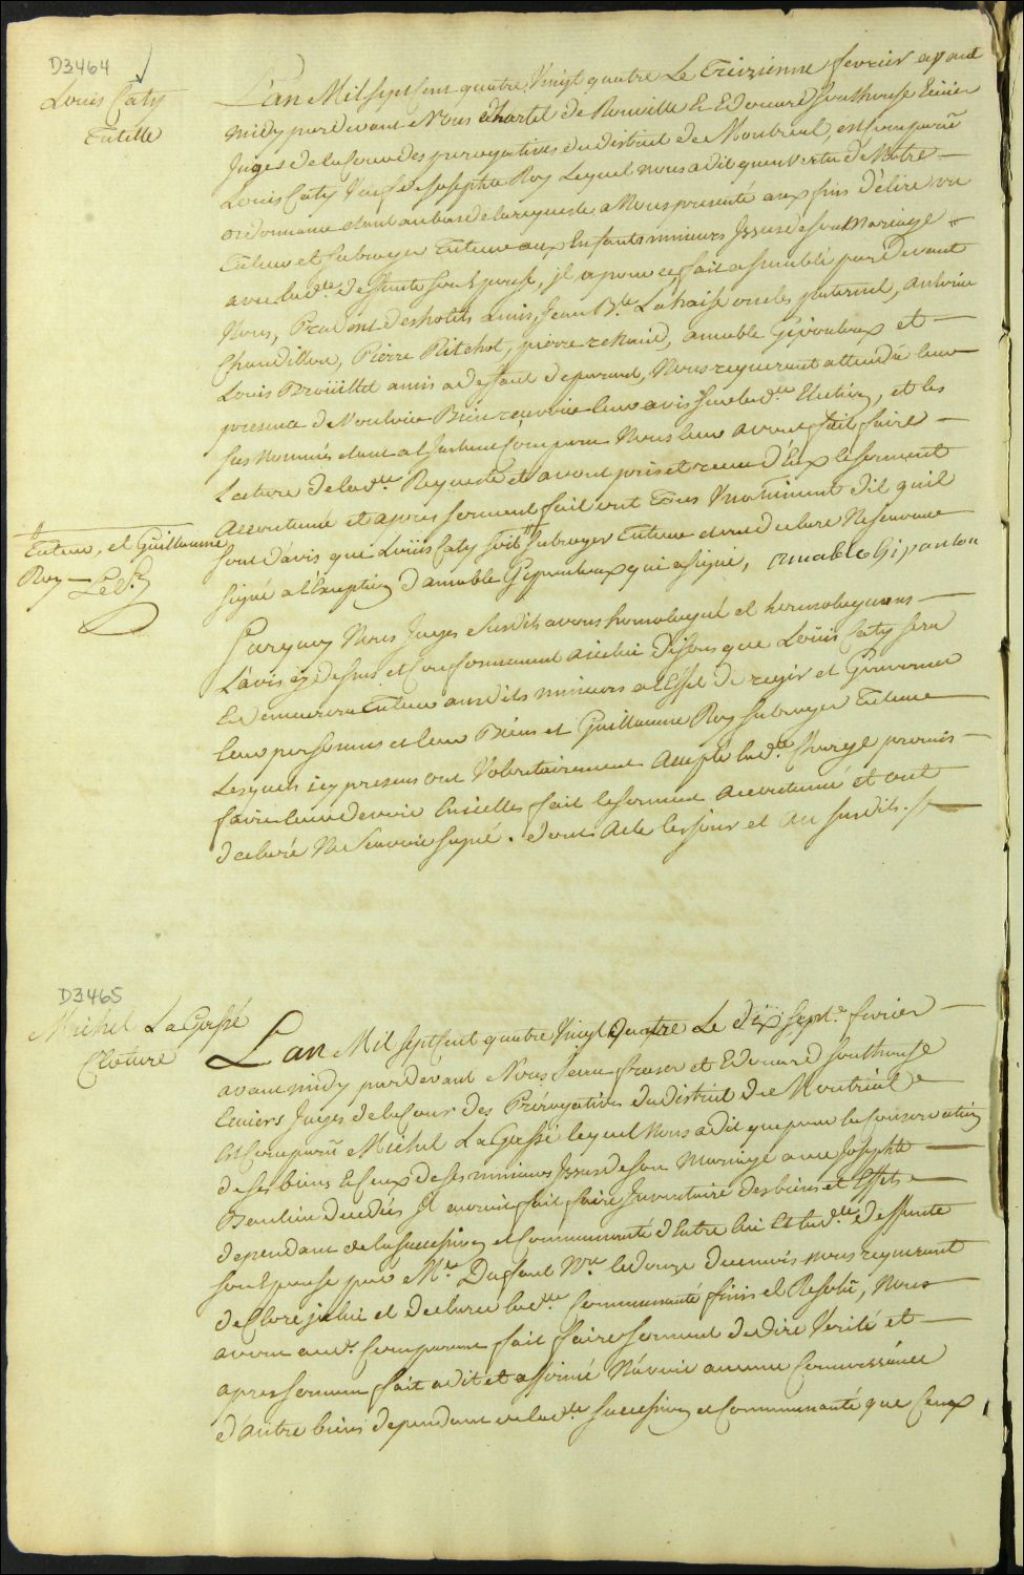 D3464
Louis Caty
Tutelle
L'an Mil sept Cent quatre Vingt quatre Le Treizieme fevrier avant
midy pardevant Nous hertel de Rouville & Edouard Southouse Ecuier
Juges de la Cour des prerogatives du district de Montreal, est comparû
Louis Caty Veuf de Josephte Roy Lequel nous a dit qu'en vertu de Notre
ordonnance etant au bas de la requeste a Nous presenté aux fins d'élire un
Tuteur et Subroger Tuteur aux Enfants mineurs Issus de son Mariage
avec lad.te deffunte son Epouse, il a pour ce fait assemblé pardevant
Nous, Prud'ent Louis, Jean B.te LaHaise oncles paternel, antoine
Chaudillon, Pierre Ritchot, pierre amable Giponloux et
Louis Broüillet amis a deffaut de parens, Nous requerant attendu leur
presence de Vouloir Bien recevoir leur avis sur lad.te Election, et les
sus Nommés etant a l'Instant Comparu Nous leur avons fait faire
Lecture de lad.te Requeste et avons pris et receu d'Eux le serment
accoutumé et apres serment fait ont Tous Unanimement dit qu'il
sont d'avis que Loüis Caty soit # subroger Tuteur et ont declaré Ne savoir
signé a l'Exception d'amable Giponloux qui a signé, amable Giponlou
# Tuteur, et Guillaume
Roy
Parquoy Nous Juges susdits avons homologué et homologuons
L'avis cy dessus et Conformement a icelui disons que Loüis Caty sera
et demeurera Tuteur ausdits mineurs a l'Effet de regir et Gouverner
leur personnes et leur Biens et Guillaume Roy Subroger Tuteur
Lesquels icy presens ont Volontairement accepté lad.te Charge promis
faire leur devoir En icelles fait le serment accoutumé et ont
declaré Ne Savoir signé. dont acte les jour et an susdits ./.
D3465
Michel LaGossé
Cloture
L'an Mil sept Cent quatre Vingt Quatre Le dix Sept.e fevrier
avant midy pardevant Nous Jean fraser et Edouard Southouse
Ecuiers Juges de la Cour des Prérogatives du district de Montréal
est Comparû Michel LaGossé lequel Nous a dit que pour la Conservation
de ses biens & Ceux de ses mineurs Issus de son Mariage avec Josephte
Beaulieu decedée Il auroit fait faire Inventaire des biens et Effets
dependant de la Succession et Communauté d'Entre lui Et lad.te deffunte
son Epouse par M.e N.re le douze du mois nous requerant
de Clore icelui et declarer lad.te Communauté finis et Resolû, Nous
avons aud.t Comparant fait faire serment de dire Verité et
apres serment fait a dit et affirmé N'avoir aucune Connoissance
d'autre biens dependant de lad.te Succession et Communauté que Ceux